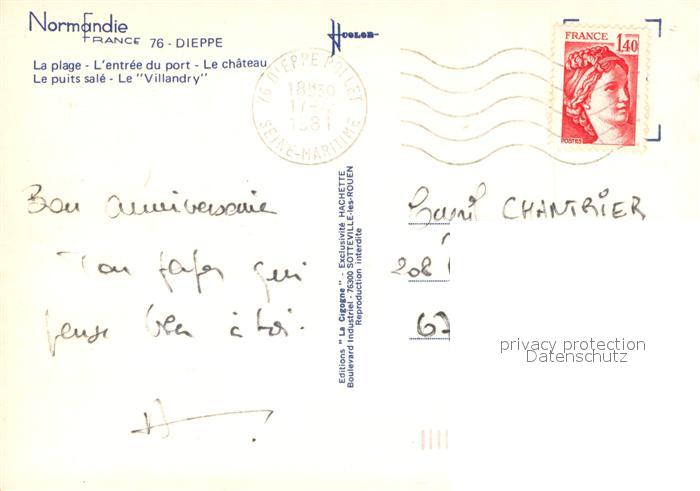 Normandie
FRANCE 76 - DIEPPE
La plage - L'entrée du port - Le château
Le puits salé - Le "Villandry"
COLOR
76 DIEPPE POLLET
18H30
1981
SEINE-MARITIME
FRANCE
1,40
POSTES
Bon anniversaire
Ton papa qui
pense bien à toi.
Editions "La Cigogne" - Exclusivité HACHETTE
Boulevard Industriel - 76300 SOTTEVILLE-les-ROUEN
Reproduction interdite
CHANTRIER
208
67
privacy protection
Datenschutz